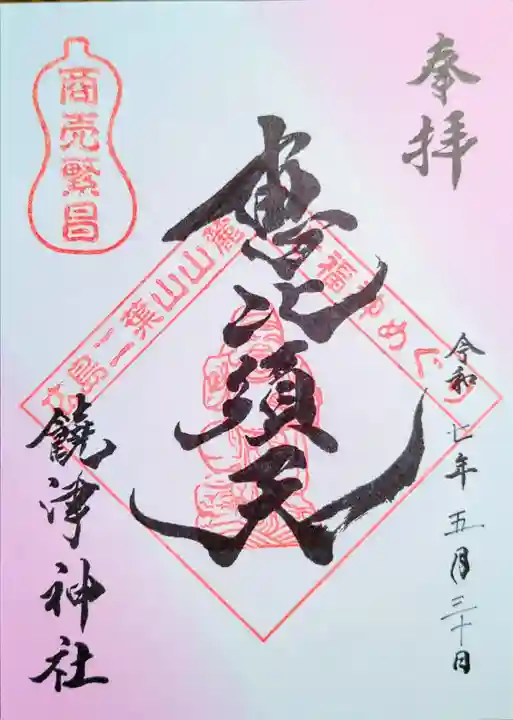 奉拝
令和七年五月三十日
恵比須天
商売繁昌
広島二葉山山麓
七福神めぐり
饒津神社